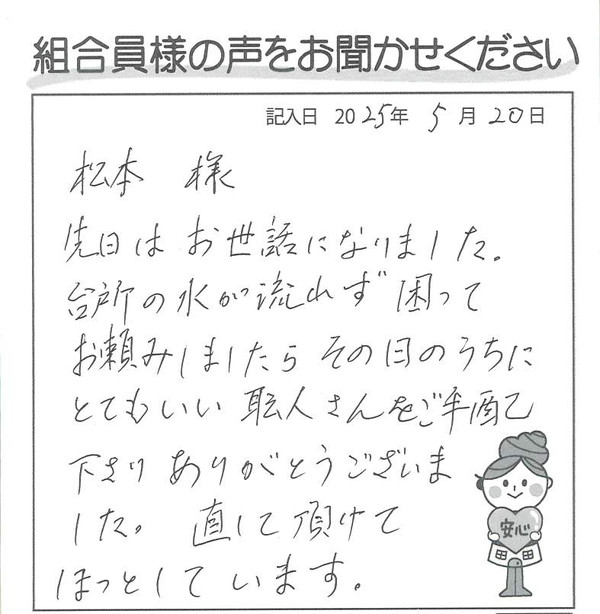 組合員様の声をお聞かせください
記入日 2025年 5月 20日
松本 様
先日は お世話になりました。
台所の水が流れず 困って
お頼みしましたら その日のうちに
とてもいい 職人さんをご手配
下さり ありがとうございま
した。 直して頂けて
ほっとしています。
安心